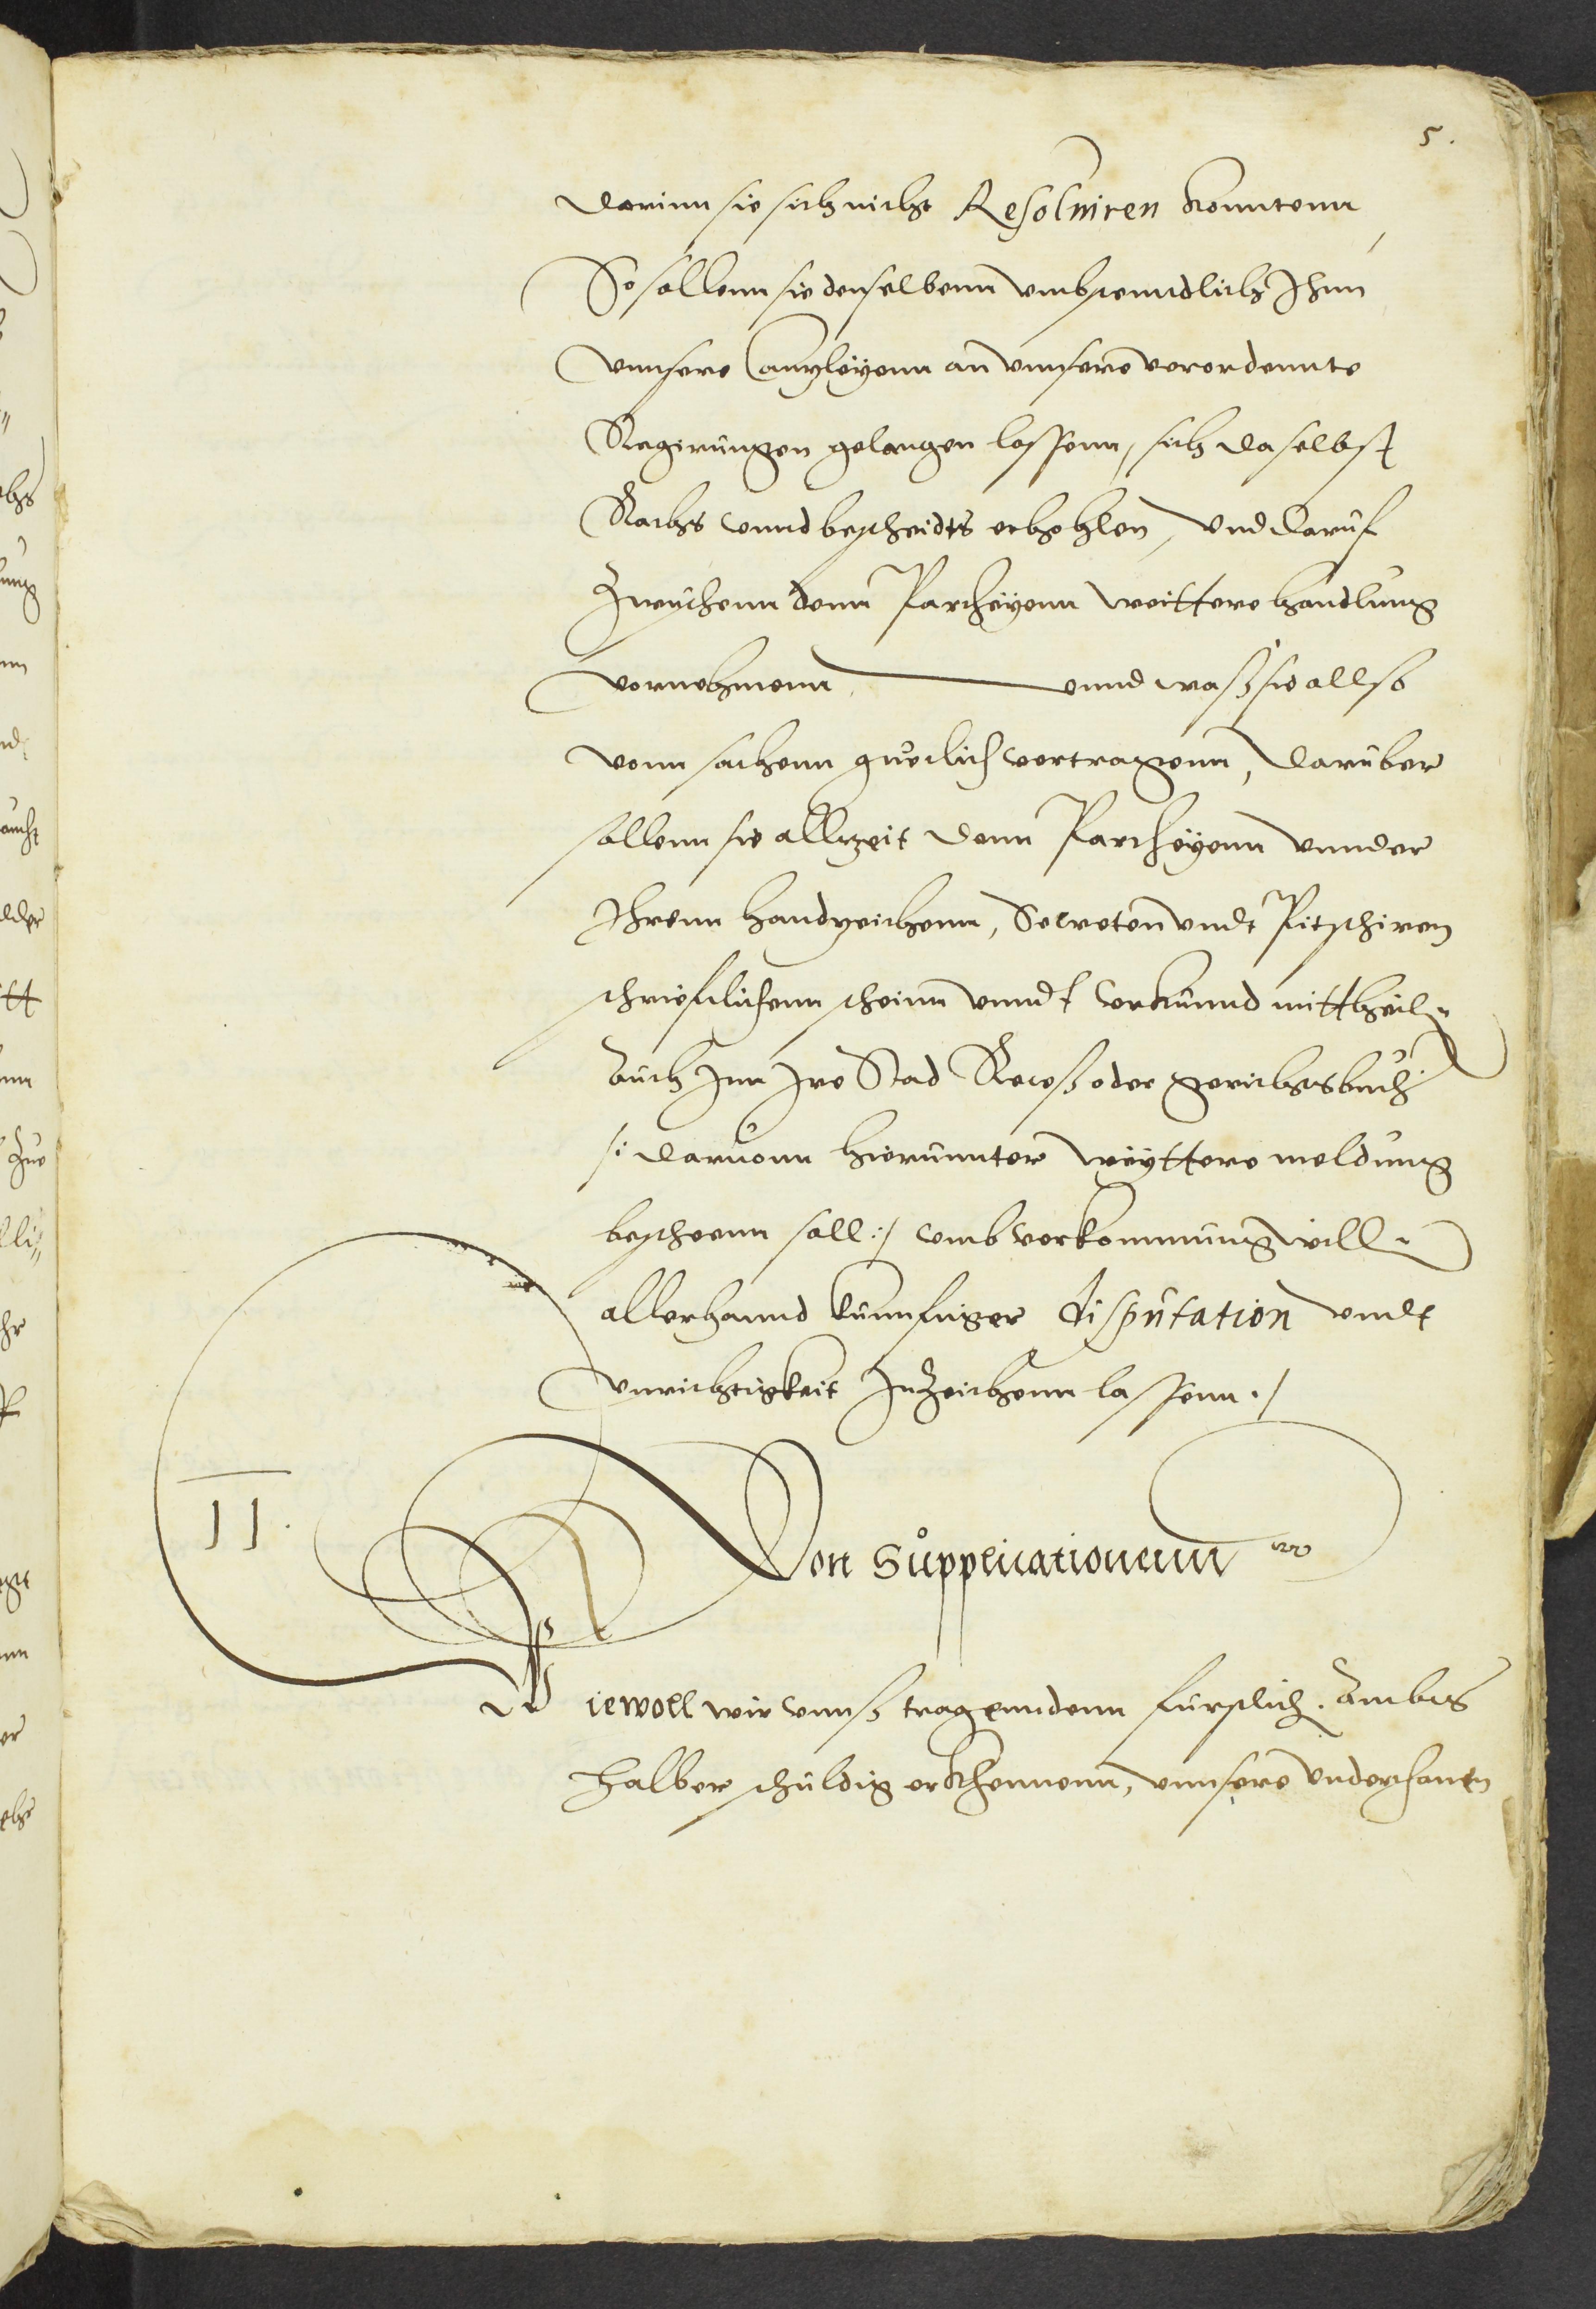 5.
darinn sie sich nicht Resoluiren konntenn,
So sollenn sie denselbenn vmbstenndlich Ihnn
vnnsere Canzleyenn an vnnsere verordennte
Regirungen gelangen lassenn, sich daselbst
Rachts vnnd bescheidts erhohlen, vnd daruf
Zwischenn denn Partheyenn weittere handlung
vornehmenn, vnnd waß sie allso
vonn sachenn guetlich vertragenn, darüber
sollenn sie allzeit denn Partheyenn vnnder
Ihrenn handzeichenn, Secreten vndt Pitschiren
schriefftlichenn scheinn vnndt vrkunnd mittheiln
auch Inn Ire Stad Receß oder gerichtsbuch
/: daruonn hierunnter weyttere meldung
bescheenn soll :/ vmb verkommung willn
allerhannd kunnftiger disputation vndt
vnrichtigkeit Inzeichenn lassenn ./
II.
Von Supplicationenn
Wiewoll wir vnnß tragenndenn fürstlich. Ambts
halber schuldig erkhennenn, vnnsere vnderthanen